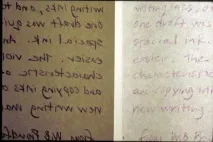 writing inks, and
one draft was
special ink. An
easier. The
characteristic
and copying inks
new writing
from W.B.
writing inks,
one draft was
special ink.
easier. The
characteristic
and copying
new writing
from W.B.